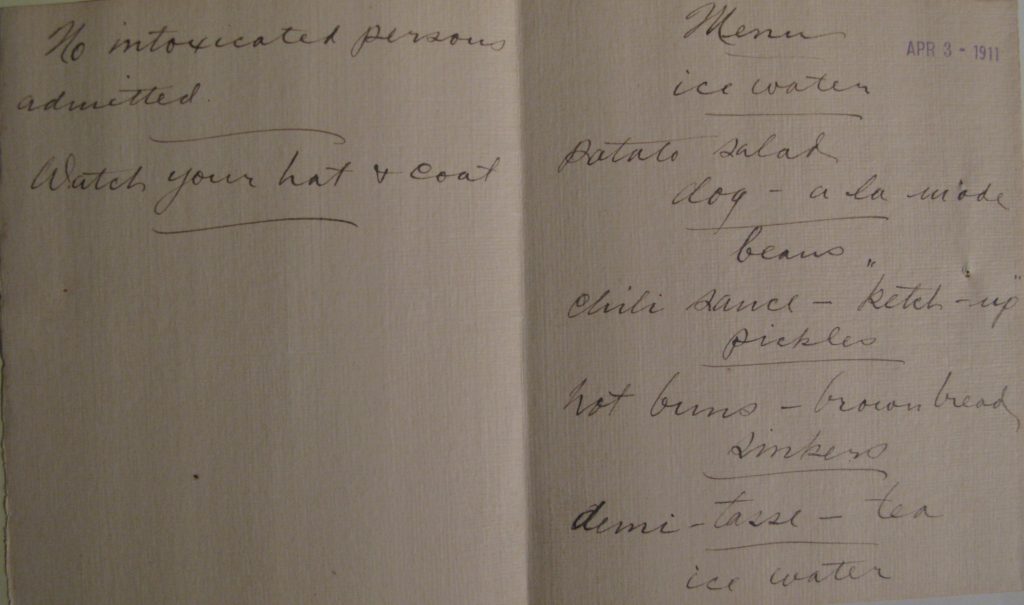 No intoxicated persons
admitted.
Watch your hat & coat
Menu
APR 3 - 1911
ice water
potato salad
dog - a la mode
beans
chili sauce - "ketch-up"
pickles
hot buns - brown bread
sinkers
demi-tasse - tea
ice water